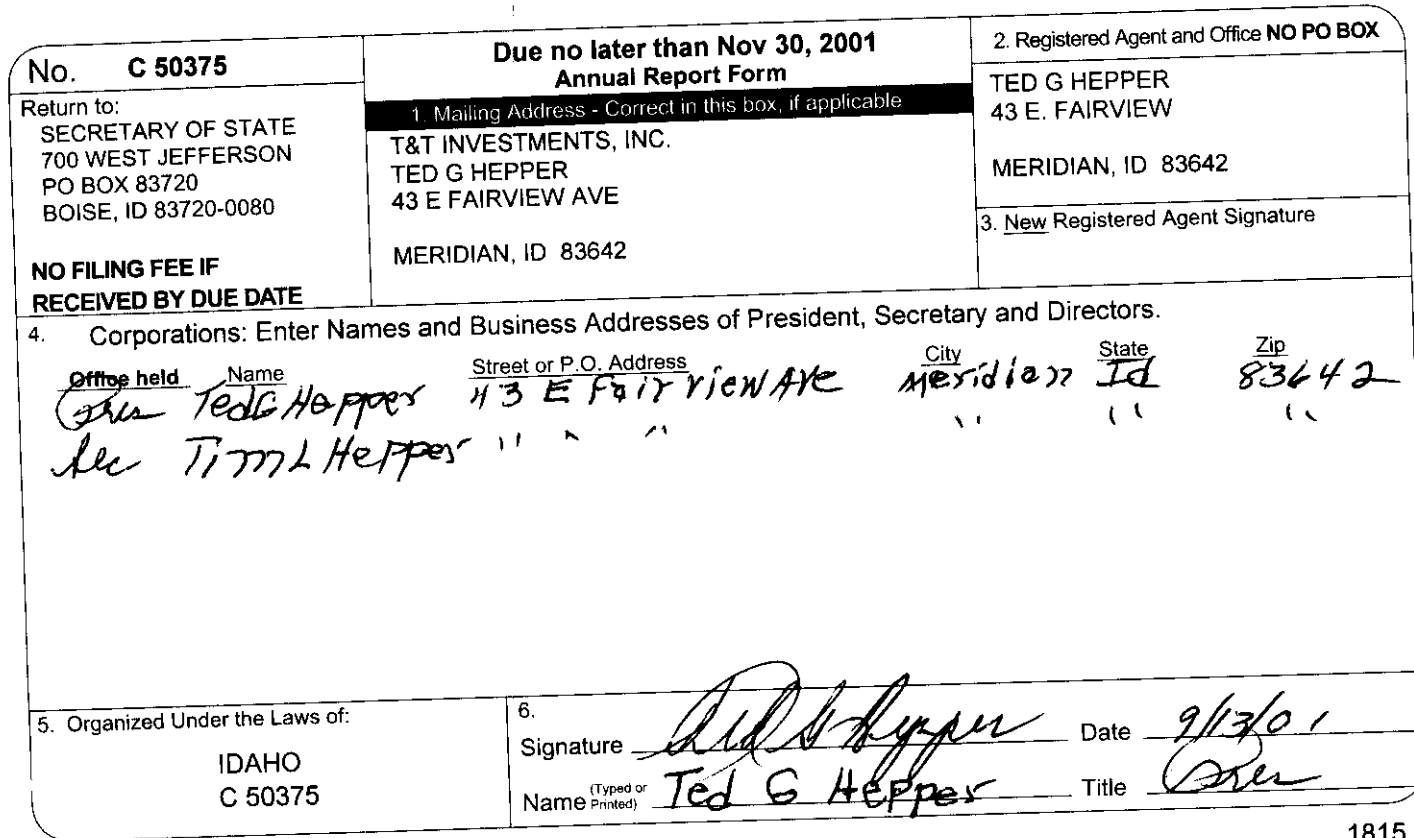 No. C 50375
Return to:
SECRETARY OF STATE
700 WEST JEFFERSON
PO BOX 83720
BOISE, ID 83720-0080
NO FILING FEE IF
RECEIVED BY DUE DATE
Due no later than Nov 30, 2001
Annual Report Form
1. Mailing Address - Correct in this box, if applicable
T&T INVESTMENTS, INC.
TED G HEPPER
43 E FAIRVIEW AVE
MERIDIAN, ID 83642
2. Registered Agent and Office NO PO BOX
TED G HEPPER
43 E. FAIRVIEW
MERIDIAN, ID 83642
3. New Registered Agent Signature
4. Corporations: Enter Names and Business Addresses of President, Secretary and Directors.
Office held Name Street or P.O. Address City State Zip
Pres Ted G Hepper 43 E Fairview Ave Meridian Id 83642
Sec Tim L Hepper " " " " " "
5. Organized Under the Laws of:
IDAHO
C 50375
6.
Signature Ted G Hepper Date 9/13/01
Name (Typed or Printed) Ted G Hepper Title Pres
1815